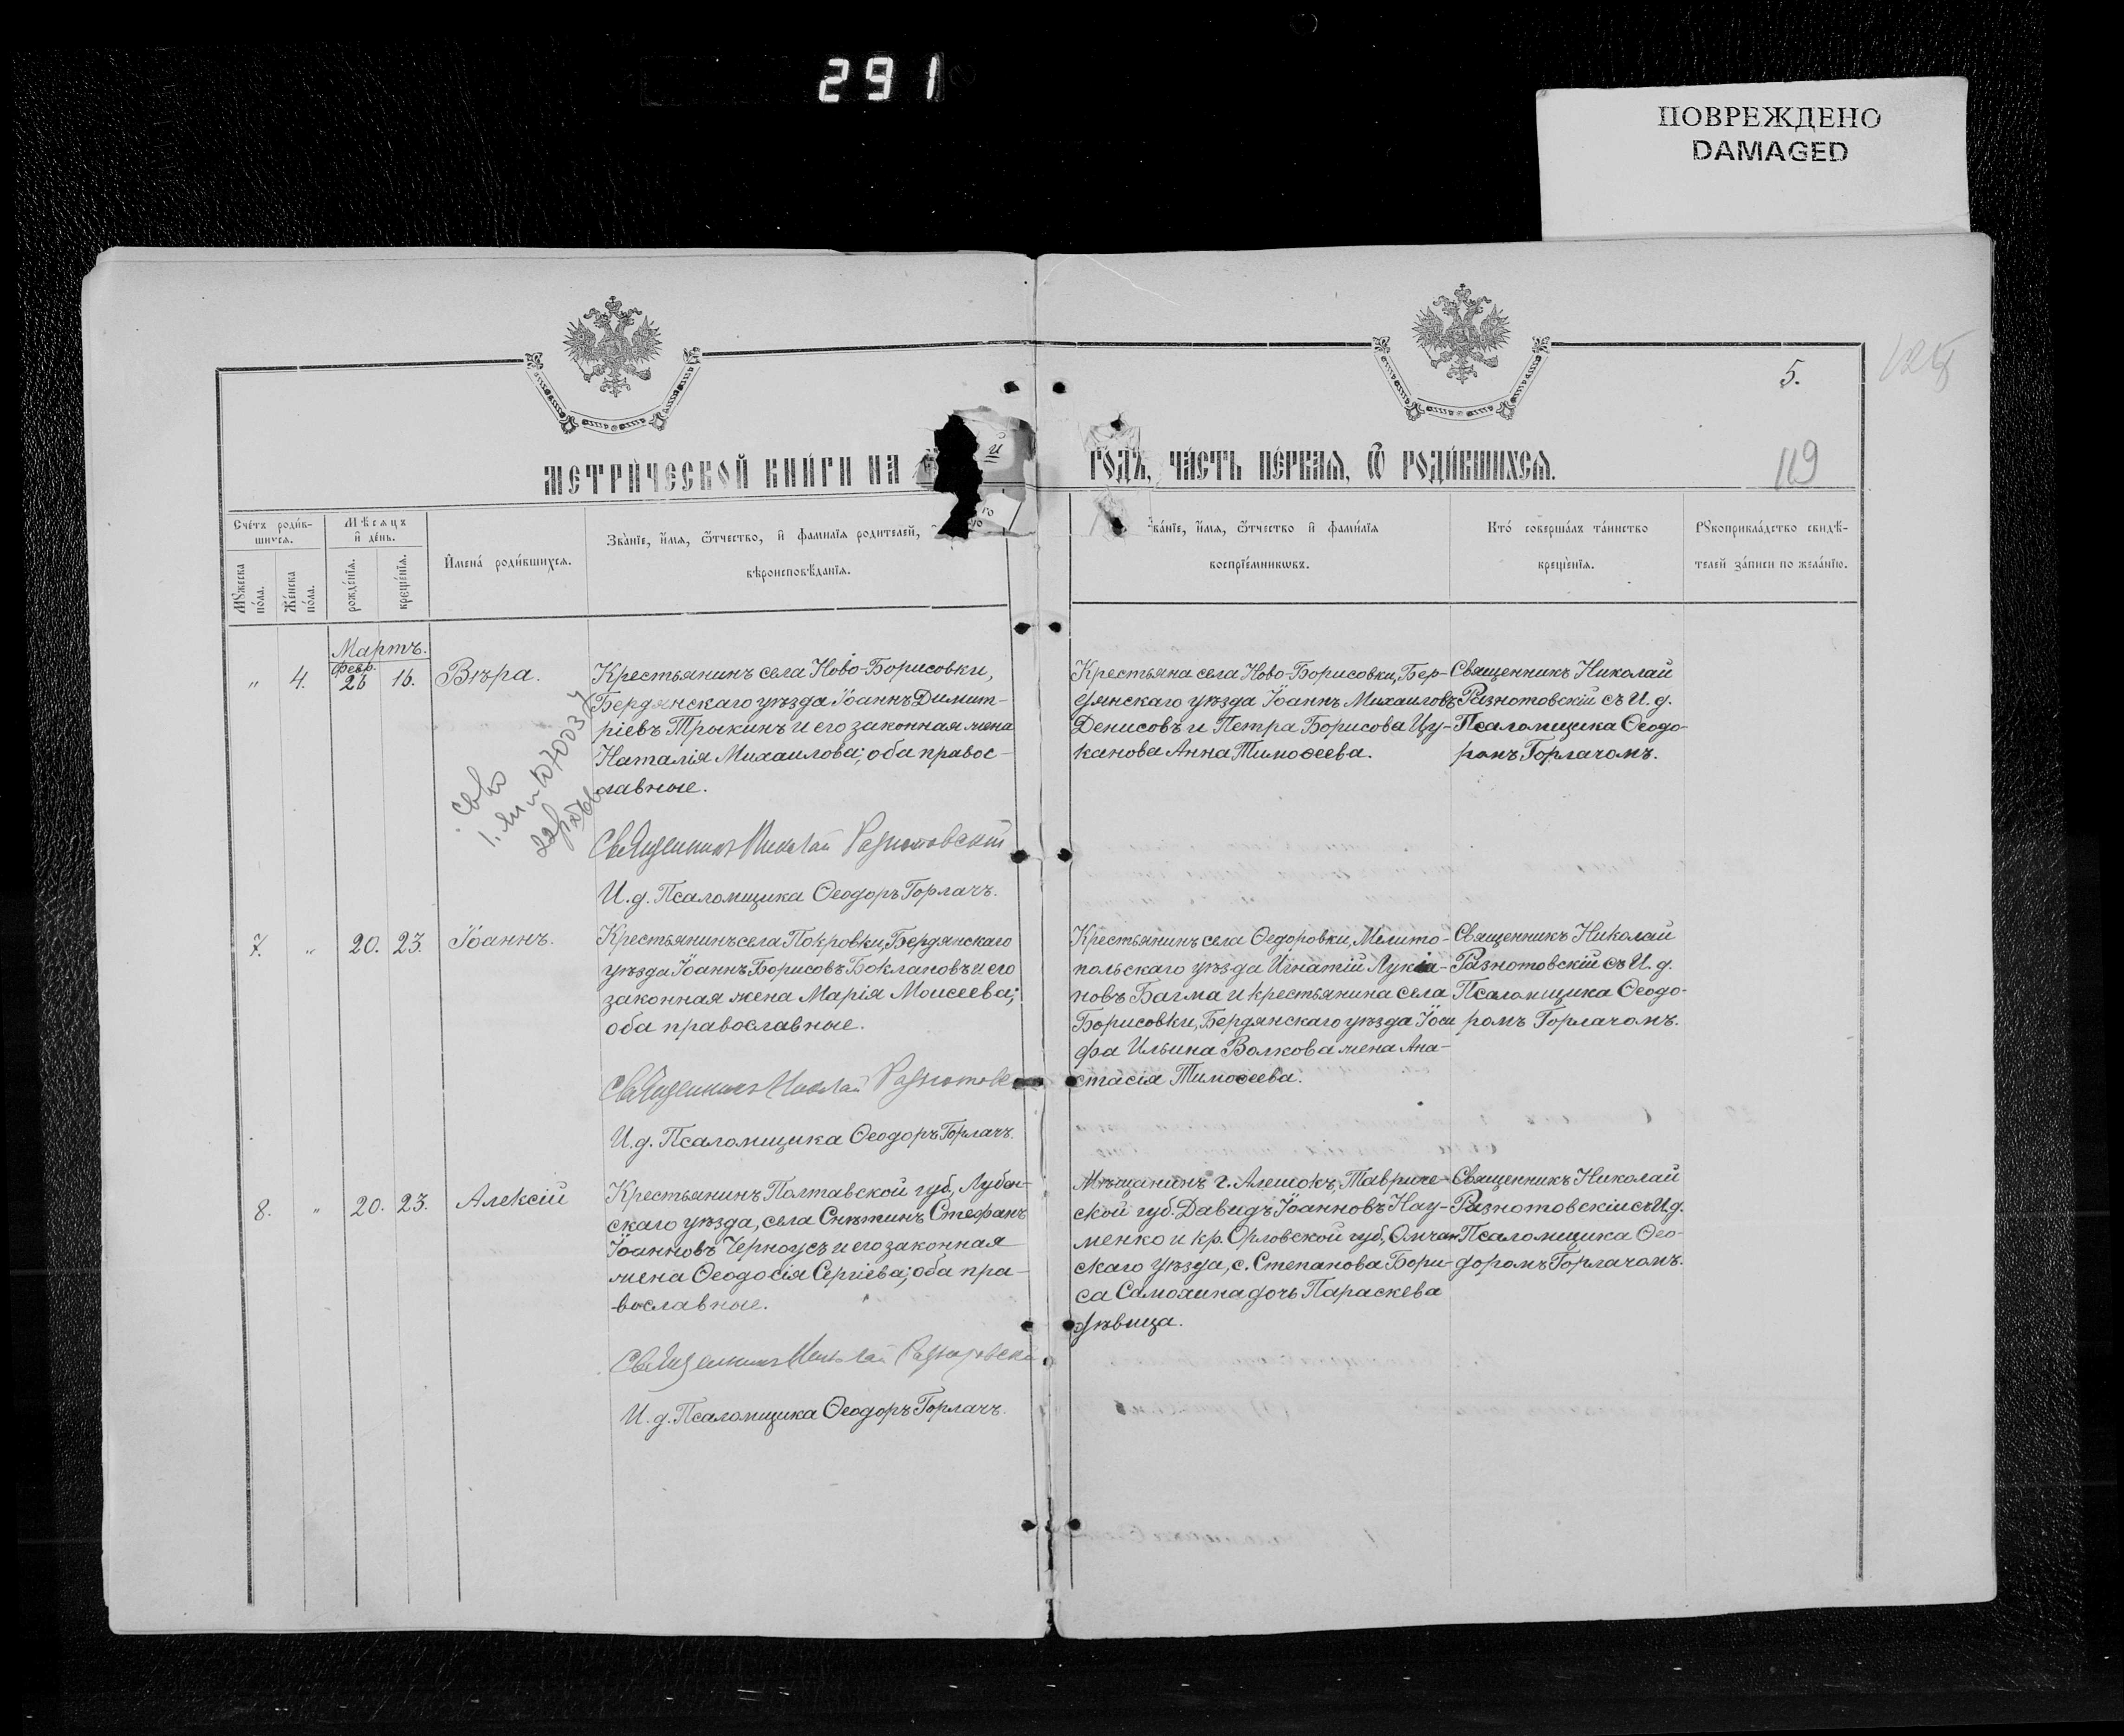 291
ПОВРЕЖДЕНО
DAMAGED
5.
119
МЕТРИ́ЧЕСКОЙ КНИ́ГИ НА
й
ГО́ДЪ, ЧА́СТЬ ПЕ́РВАЯ, Ѿ РОДИ́ВШИХСЯ.
Сче́тъ роди́в-
шихся.
Мꙋжеска по́ла.
Же́нска по́ла.
Мѣ́сяцъ
и҆ де́нь.
рожде́нїя.
креще́нїя.
И҆мена́ роди́вшихся.
Зва́нїе, и҆́мя, ѻ҆́тчество, и҆ фами́лїя роди́телей,
вѣроисповѣ́данїя.
ва́нїе, и҆́мя, ѻ҆́тчество и҆ фами́лїя
воспрїе́мниковъ.
Кто́ соверша́лъ та́инство
креще́нїя.
Рꙋкоприкла́дство свидѣ́-
телей за́писи по жела́нїю.
Мартъ.
„ 4. февр. 26 16. Вѣра.
Крестьянинъ села Ново-Борисовки,
Бердянскаго уѣзда Іоаннъ Димит-
ріевъ Трыкинъ и его законная жена
Наталія Михаилова; оба правос-
лавные.
Священникъ Николай Разнотовскій
И. д. Псаломщика Ѳеодоръ Горлачъ.
Крестьяна села Ново-Борисовки, Бер-
дянскаго уѣзда Іоаннъ Михаиловъ
Денисовъ и Петра Борисова Цу-
канова Анна Тимоѳеева.
Священникъ Николай
Разнотовскій съ И. д.
Псаломщика Ѳеодо-
ромъ Горлачомъ.
7. „ 20. 23. Іоаннъ.
Крестьянинъ села Покровки, Бердянскаго
уѣзда Іоаннъ Борисовъ Боклановъ и его
законная жена Марія Моисеева;
оба православные.
Священникъ Николай Разнотовс
И. д. Псаломщика Ѳеодоръ Горлачъ.
Крестьянинъ села Ѳедоровки, Мелито-
польскаго уѣзда Игнатій Лукіа-
новъ Багма и крестьянина села
Борисовки, Бердянскаго уѣзда Іоси
фа Ильина Волкова жена Ана-
стасія Тимоѳеева.
Священникъ Николай
Разнотовскій съ И. д.
Псаломщика Ѳеодо-
ромъ Горлачомъ.
8. „ 20. 23. Алексій
Крестьянинъ Полтавской губ., Лубен-
скаго уѣзда, села Снѣтинъ Стефанъ
Іоанновъ Черноусъ и его законная
жена Ѳеодосія Сергіева; оба пра-
вославные.
Священникъ Николай Разнотовскі
И. д. Псаломщика Ѳеодоръ Горлачъ.
Мѣщанинъ г. Алешокъ, Тавриче-
ской губ. Давидъ Іоанновъ Нау-
менко и кр. Орловской губ., Мчан
скаго уѣзда, с. Степанова Бори-
са Самохина дочь Параскева
дѣвица.
Священникъ Николай
Разнотовскій съ И. д.
Псаломщика Ѳео-
доромъ Горлачомъ.